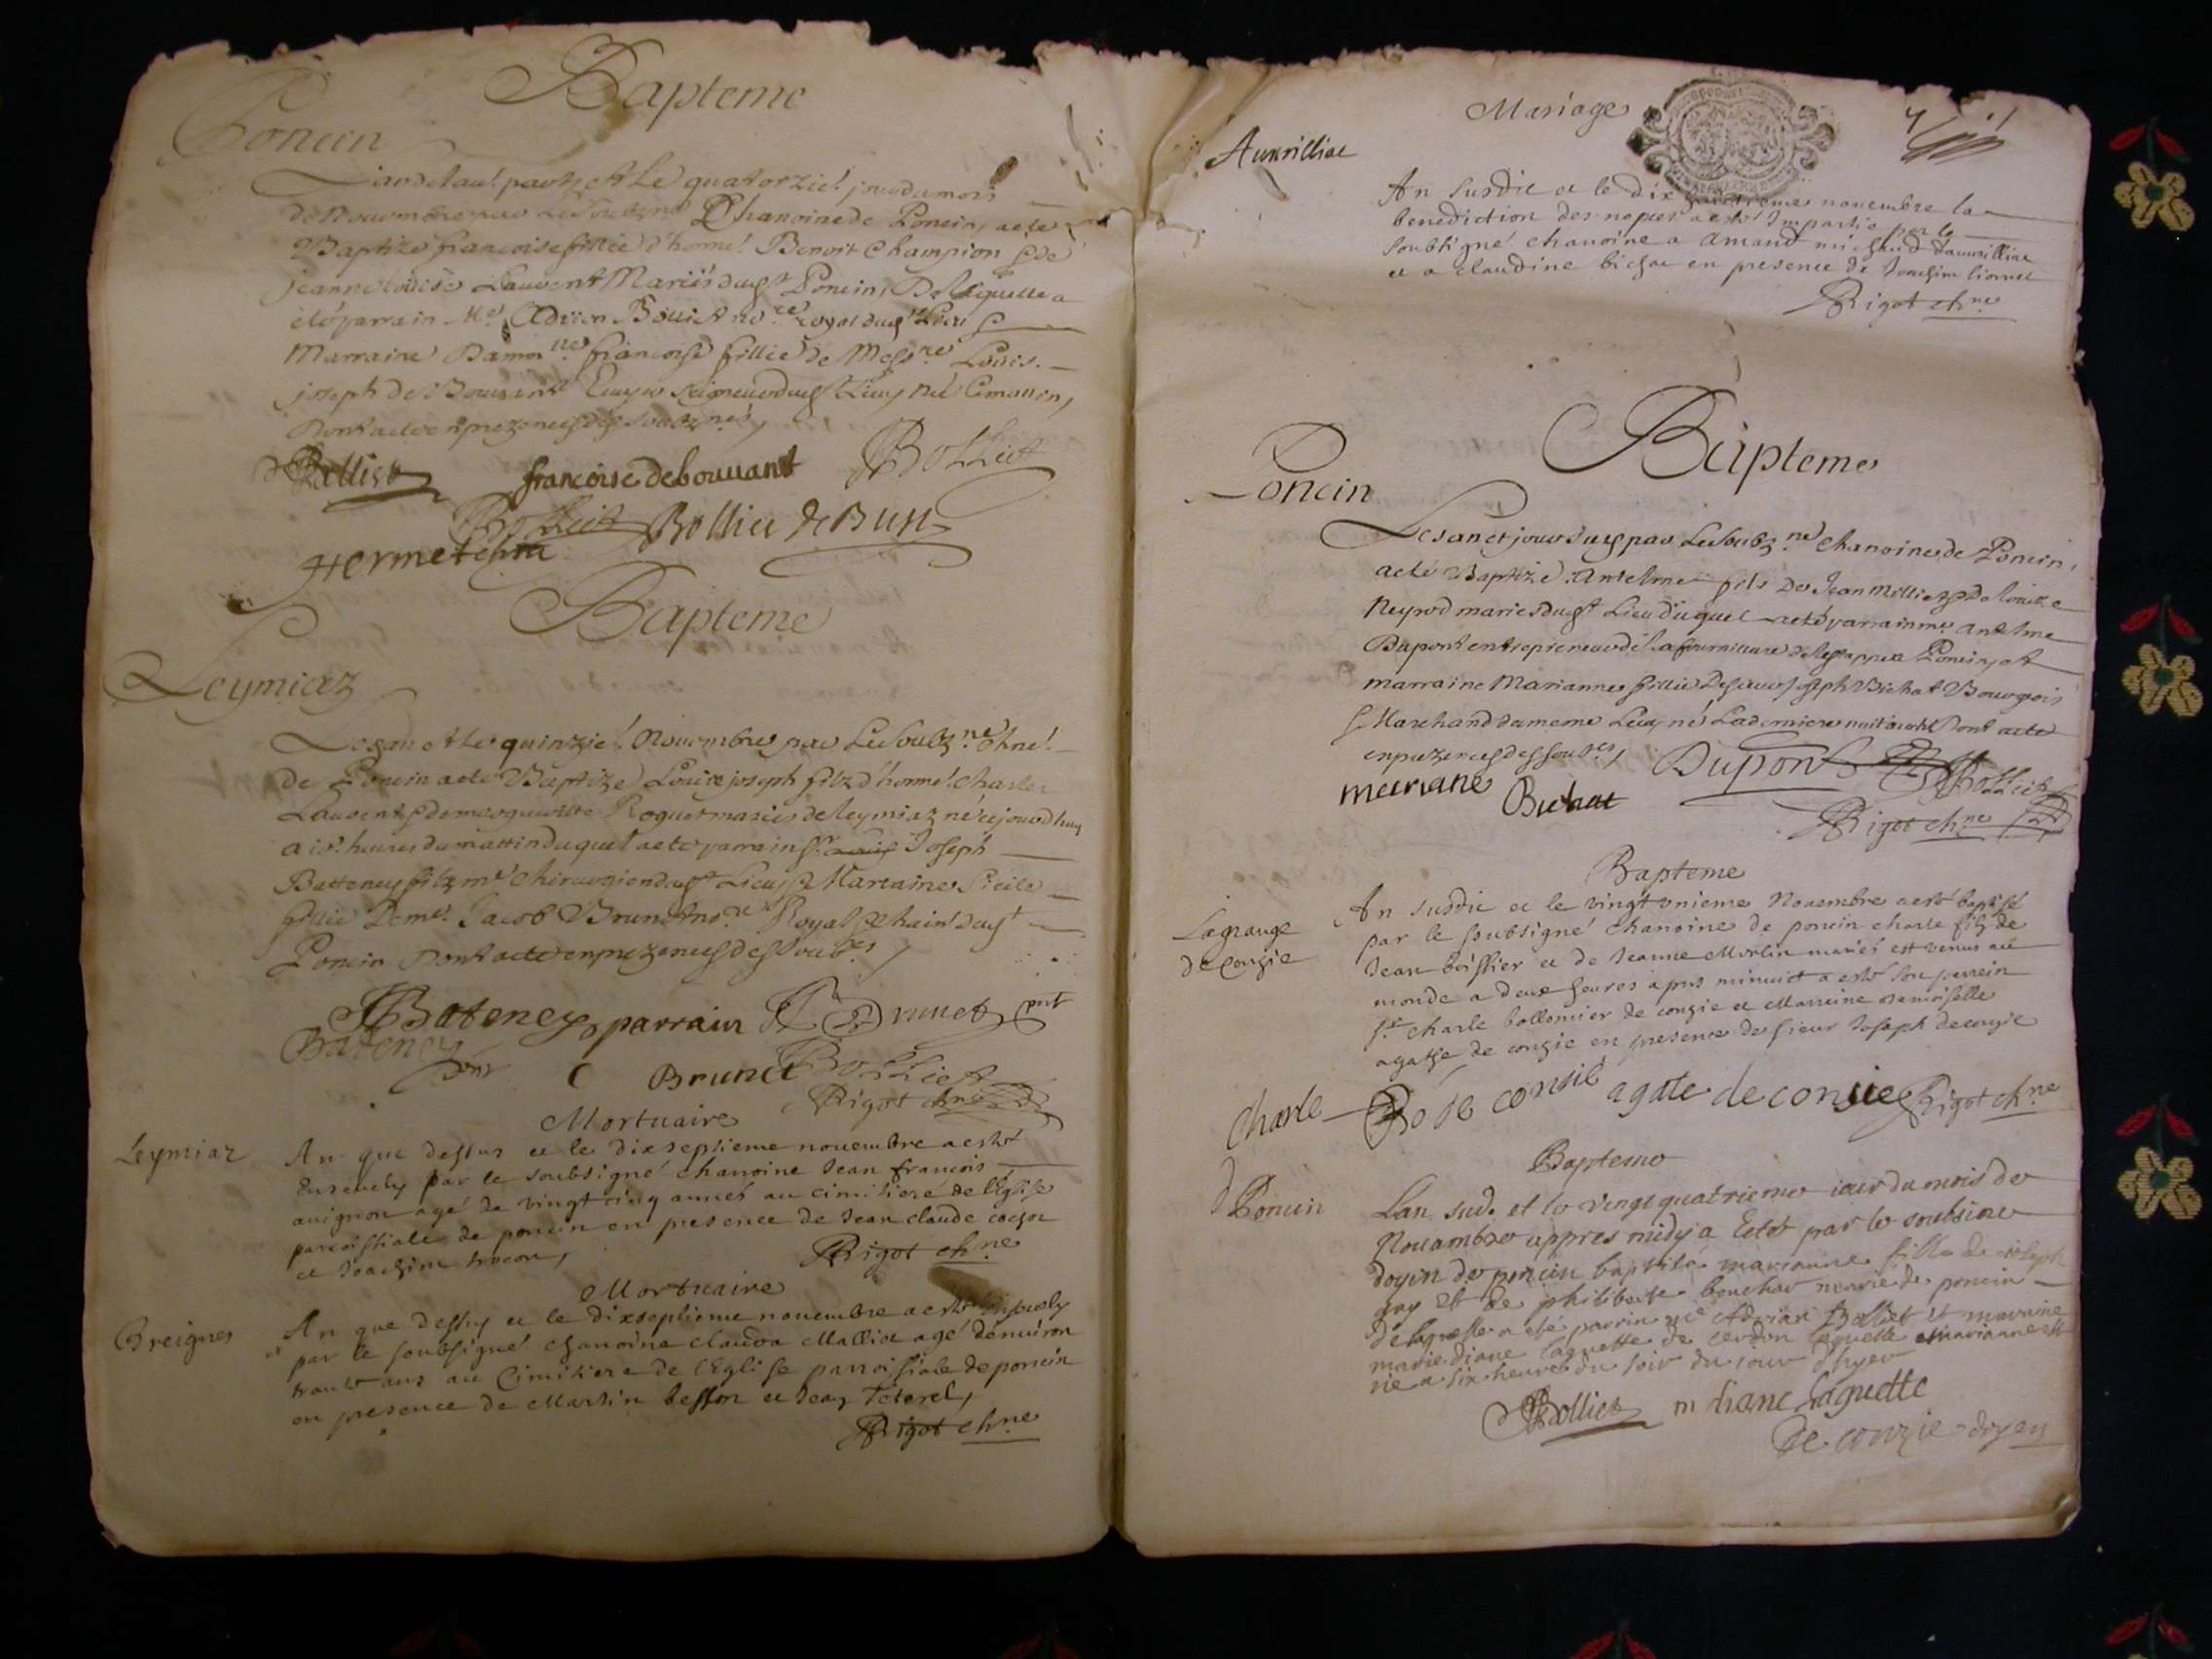 Bapteme
Poncin
Landelaut party et le quatorzie! jour du mois
de Nouembre par Le Soubzne Chanoine de Poncin, aeté
Baptize francoise fillie d'home! Benoit Champion & de
jeanne louise Lauvent Mariés dugt Poncin, De laquelle a
eté parrain Me Adrien Bolliet nore royal dugt Lieu &
Marraine Damonlle francoise fillie de Messre Louis
joseph de Bouvent Seigneur dugt Lieu, né
Dont acte en prezences des soubznés,
Bolliet francoise debouuant Bolliet
Bolliet Bollier de Bun
hermet chne
Bapteme
Leymiaz
Lesan et le quinzie! Nouembre par Le Soubzne chne!
de Poncin aeté Baptize Louise joseph filz d'home! Charles
Lauvent & demargueritte Roguet mariés de leymiaz né cejourdhuy
a heures du mattin duquel aeté parrain Sr Joseph
Batteney filz me Chirurgien dugt Lieu, & Marraine Sicile
fillie Deme Jacob Brunet nore Royal & chatn dugt
Poncin Dont acte en prezences des soubes,
Bateney parrain Brunet pnt
Bateney pnt C Brunet Bolliet
Rigot chne
Mortuaire
Leymiaz
An que dessus et le dixseptieme nouembre a esté
Ensevely par le soubsigné chanoine Jean francois
auignon agé de vingt cinq annes au cimitiere de l'Eglise
paroissiale de poncin en presence de Jean claude cochon
et Joachim
Rigot chne
Mortuaire
Breignes
An que dessus et le dixseptieme nouembre a esté ensevely
par le soubsigné chanoine clauda Mallia agé denuiron
trante ans au Cimitiere de l'Eglise parroissiale de poncin
en presence de Martin besson et Jean Teterel,
Rigot chne
Mariage
Aunrilliac
An susdit et le dix nouembre la
benediction des nopces a esté Impartie par le
soubsigné chanoine a Amand michaud
et a claudine bichat en presence de Joachim lionnet
Rigot chne
Bapteme
Poncin
Lesan et jour susd par Lesoubzne Chanoine de Poncin,
aeté Baptizé Antelme fils De Jean Millier & de louise
Neyrod maries dugt Lieu duquel aeté parrain me Antelme
Dupont entrepreneur de la fourniture deletappe a Poncin, et
marraine Marianne fillie De sieur Joseph Bichat Bourgeois
& Marchand du meme Lieu, né Laderniere nuit Dont acte
en prezences des soubes,
meeriane Bichat Dupont Bolliet
Rigot chne
Bapteme
Lagrange
de Conzie
An susdit et le vingt vnieme Nouembre a esté baptisé
par le soubsigné chanoine de poncin charle filz de
Jean boissier et de Jeanne Morlin mariés est venus au
monde a deux heures apres minuict a esté son parrein
sr charle bollomier de conzie et Marreine demoiselle
agathe de conzie en presence de sieur Joseph de conzie
Charle Bo de consié agate de consie Rigot chne
Bapteme
Poncin
Lan sud. et le vingt quatrieme iour du mois de
Nouambre appres midy a Estet par le soubsine
doyin de poncin baptisé marianne fille de ioseph
gay et de philiberte bouchar marie de poncin
de laquelle a eté parrin me Adrian Bolliet et marraine
marie diane laguette de cerdon laquelle marianne est
née a six heures du soir du iour d'hyer
Bolliet m diane Laguette
De conzie doyen